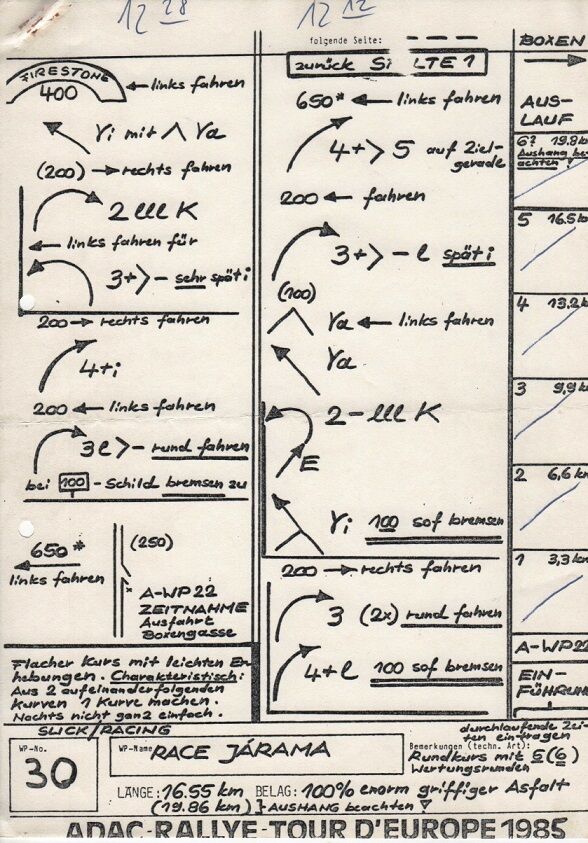 12 28
12 12
folgende Seite:
FIRESTONE
400
← links fahren
Ri mit ∧ Ra
(200) → rechts fahren
2 lll K
← links fahren für
3+> – sehr spät i
200 → rechts fahren
4+i
200 ← links fahren
3l>– rund fahren
bei 100 – Schild bremsen zu
650*
links fahren
(250)
A-WP 22
ZEITNAHME
Ausfahrt
Boxengasse
Flacher Kurs mit leichten Er-
hebungen. Charakteristisch:
Aus 2 aufeinanderfolgenden
Kurven 1 Kurve machen.
Nachts nicht ganz einfach.
zurück S LTE 1
650* ← links fahren
4+> 5 auf Ziel-
gerade
200 ← fahren
3+> – l spät i
(100)
Ra ← links fahren
Ra
2-lll K
E
Ri 100 sof bremsen
200 → rechts fahren
3 (2x) rund fahren
4+l 100 sof bremsen
BOXEN
AUS-
LAUF
6? 19.8 k
Aushang be-
achten!
5 16.5 k
4 13,2 k
3 9,9 k
2 6,6 k
1 3,3 k
A-WP 22
EIN-
FÜHRUN
durchlaufende Zei-
ten eintragen
SLICK/RACING
WP-No.
30
WP-Name RACE JÁRAMA
Bemerkungen (techn. Art):
Rundkurs mit 5(6)
Wertungsrunden
LÄNGE: 16.55 km BELAG: 100% enorm griffiger Asfalt
(19.86 km) } AUSHANG beachten
ADAC-RALLYE-TOUR D'EUROPE 1985